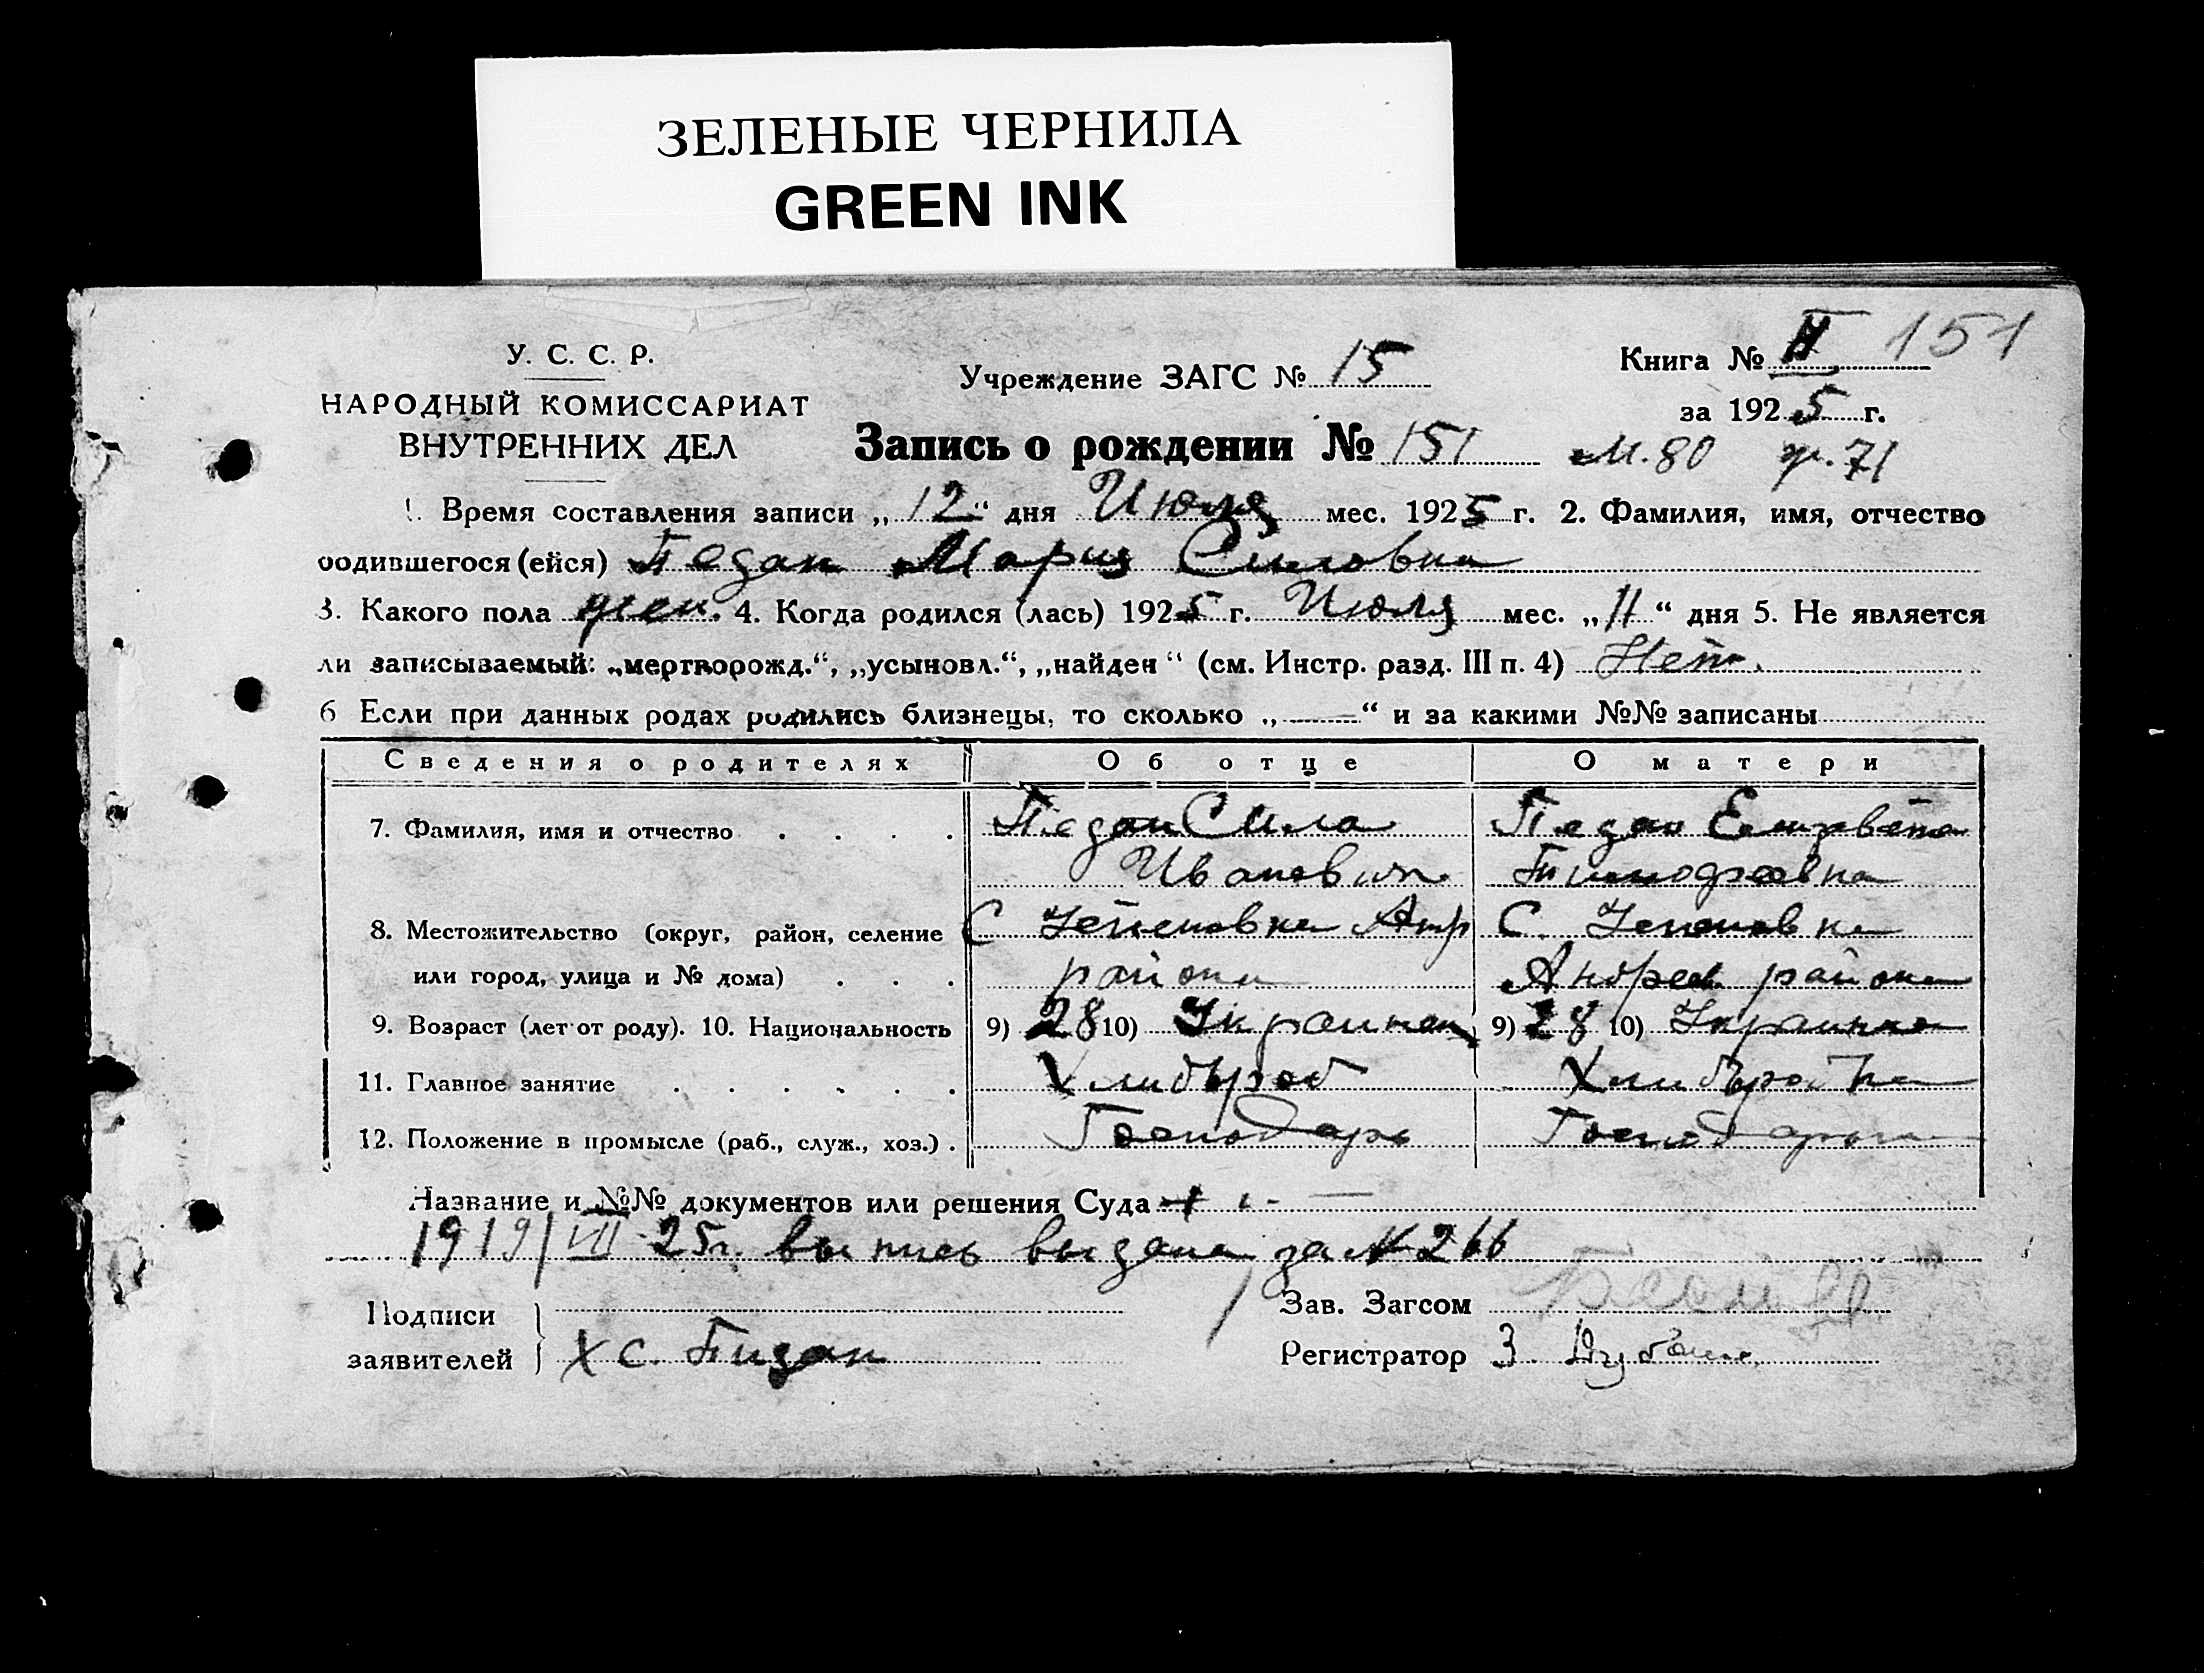 ЗЕЛЕНЫЕ ЧЕРНИЛА
GREEN INK
У. С. С. Р.
НАРОДНЫЙ КОМИССАРИАТ
ВНУТРЕННИХ ДЕЛ
Учреждение ЗАГС № 15
Книга № II 151
за 1925 г.
Запись о рождении № 151 М.80 ж.71
1. Время составления записи „12“ дня Июля мес. 1925 г. 2. Фамилия, имя, отчество
родившегося (ейся) Педан Мария Силовна
3. Какого пола жен. 4. Когда родился (лась) 1925 г. Июля мес. „11“ дня 5. Не является
ли записываемый: „мертворожд.“, „усыновл.“, „найден“ (см. Инстр. разд. III п. 4) Нет.
6 Если при данных родах родились близнецы, то сколько „—“ и за какими №№ записаны
Сведения о родителях Об отце О матери
7. Фамилия, имя и отчество . . . . Педан Сила Педан Елизавета
Иванович Тимофеевна
8. Местожительство (округ, район, селение С С.
или город, улица и № дома) . . . района Андреев района
9. Возраст (лет от роду). 10. Национальность 9) 28 10) Украинец 9) 28 10) Украинка
11. Главное занятие . . . . . . Хлибороб Хлиборобка
12. Положение в промысле (раб., служ., хоз.) . Господарь
Название и №№ документов или решения Суда
1919/VII 25г. выпись выдана за № 266
Подписи
заявителей Х С. Пидан
Зав. Загсом
Регистратор З.